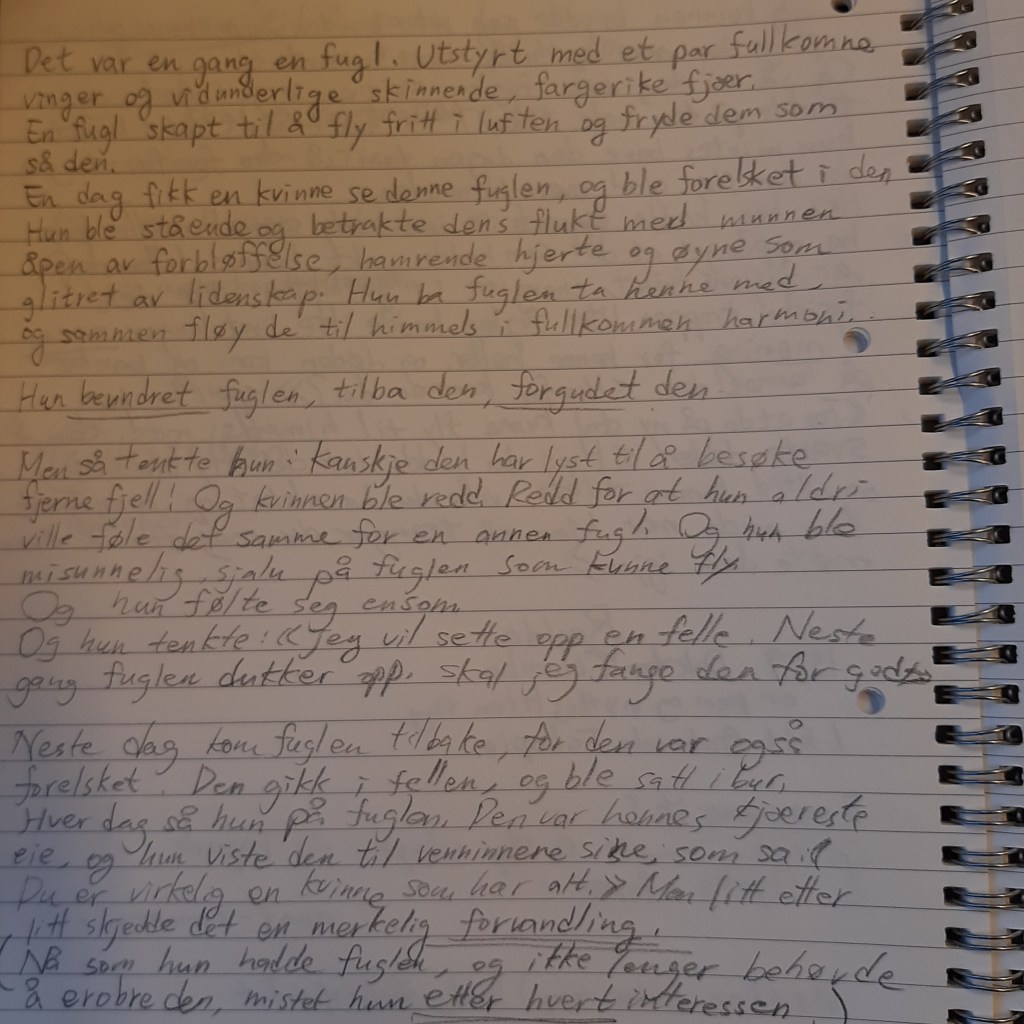 Det var en gang en fugl. Utstyrt med et par fullkomne
vinger og vidunderlige skinnende, fargerike fjær.
En fugl skapt til å fly fritt i luften og fryde dem som
så den.
En dag fikk en kvinne se denne fuglen, og ble forelsket i den
Hun ble stående og betrakte dens flukt med munnen
åpen av forbløffelse, hamrende hjerte og øyne som
glitret av lidenskap. Hun ba fuglen ta henne med,
og sammen fløy de til himmels i fullkommen harmoni..
Hun beundret fuglen, tilba den, forgudet den
Men så tenkte hun: Kanskje den har lyst til å besøke
fjerne fjell! Og kvinnen ble redd. Redd for at hun aldri
ville føle det samme for en annen fugl. Og hun ble
misunnelig, sjalu på fuglen som kunne fly.
Og hun følte seg ensom
Og hun tenkte: «Jeg vil sette opp en felle. Neste
gang fuglen dukker opp. skal jeg fange den for godt»
Neste dag kom fuglen tilbake, for den var også
forelsket. Den gikk i fellen, og ble satt i bur.
Hver dag så hun på fuglen. Den var hennes kjæreste
eie, og hun viste den til venninnene sine, som sa: «
Du er virkelig en kvinne som har alt.» Men litt etter
litt skjedde det en merkelig forvandling.
(Nå som hun hadde fuglen, og ikke lenger behøvde
å erobre den, mistet hun etter hvert interessen.)